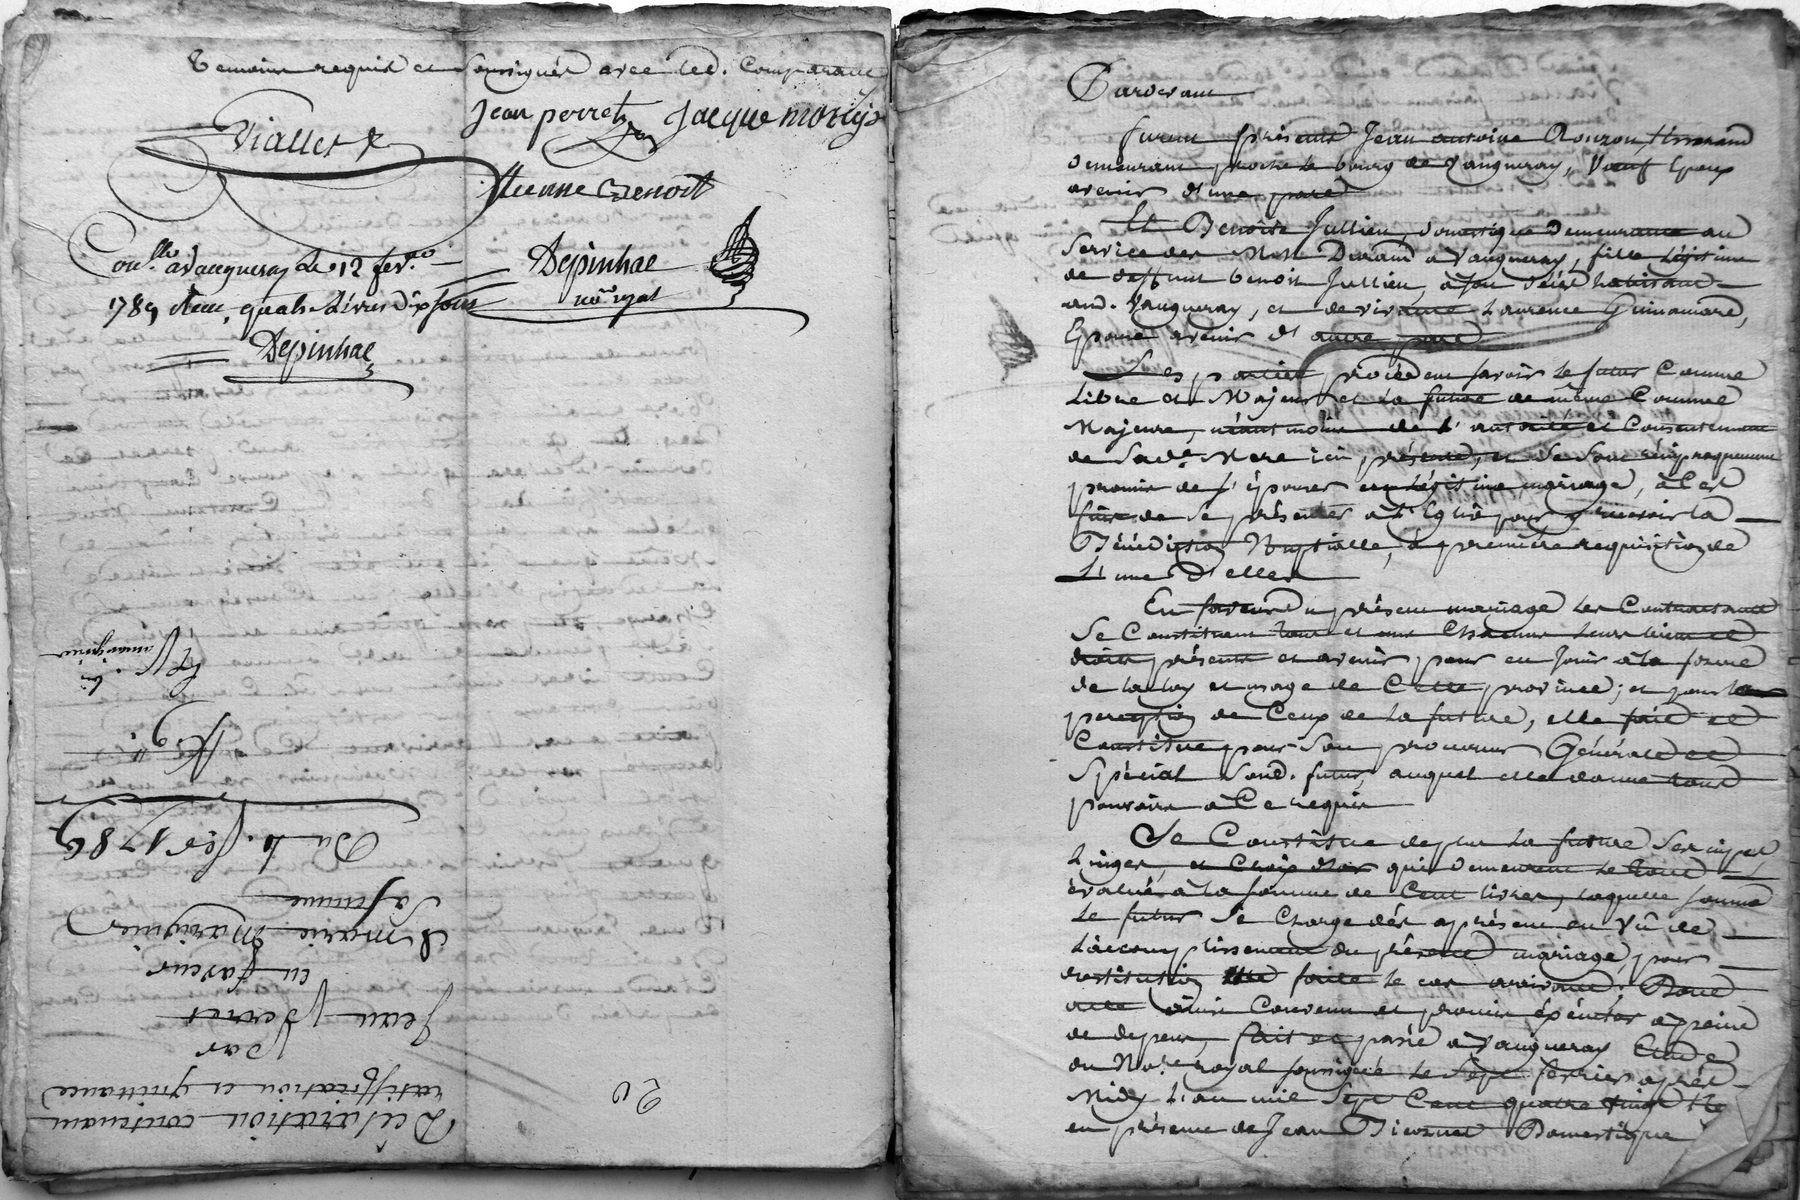 Temoins requis et soussignés avec led. Comparant
Jean perret Jacque morel
Viallet
Etienne Benoit
Depinhac
no.re royal
Con.llé a Vaugneray Le 12 fev.er
1789 Recu, quatre Livres dix sous
Depinhac
Du 4. fév.r 1789
Déclaration contenant
ratiffication et quittance
par
Jean Perret
en faveur
de marie Marignier
sa femme
20
Pardevant
furent présents Jean antoine Rouzon, tisserand
demeurant proche le bourg de Vaugneray, Veuf Epoux
avenir d'une part
Et Benoite Jullien, domestique demeurante au
Service de Durand a Vaugneray, fille Légitime
de deffunt benoit Jullien, à son décès habitant
aud. Vaugneray, et de vivante Laurence Guinamard,
Epouse avenir d'autre part
Les parties procédent savoir le futur Comme
Libre et Majeur et la future de même Comme
Majeure, néantmoins de L'autorité et Consentement
de Sad.e Mere ici présente, et se sont réciproquement
promis de s'épouser en légitime mariage, à Cet
effet de se présenter à L'Eglise pour y recevoir la
Bénédiction Nuptialle, à première requisition de
L'une D'elles
En faveur du présent mariage les Contractants
Se Constituent tous et un Chacun leurs biens et
droits présents et avenir, pour en Jouir à la forme
de la loy et usage de Cette province; et pour la
perception de Ceux de la future, elle fait et
Constitue pour Son procureur Général et
Spécial Sond. futur, auquel elle donne tout
pouvoirs à Ce requis
Se Constitue deplus la future Ses nipes
Linges, et Croix d'or qui demeurent le tout
évalués à la somme de Cent livres, laquelle somme
Le futur Se Charge dés aprésent en Vû de
L'accomplissement du présent mariage, pour
restitution faite le cas arrivant. Dont
acte ainsi Convenu et promis exécuter à peine
de depens, fait et passé à Vaugneray Etude
du No.re royal soussigné le Sept février après
Midy L'an mil Sept Cent quatre vingt
en présence de Jean Domestique